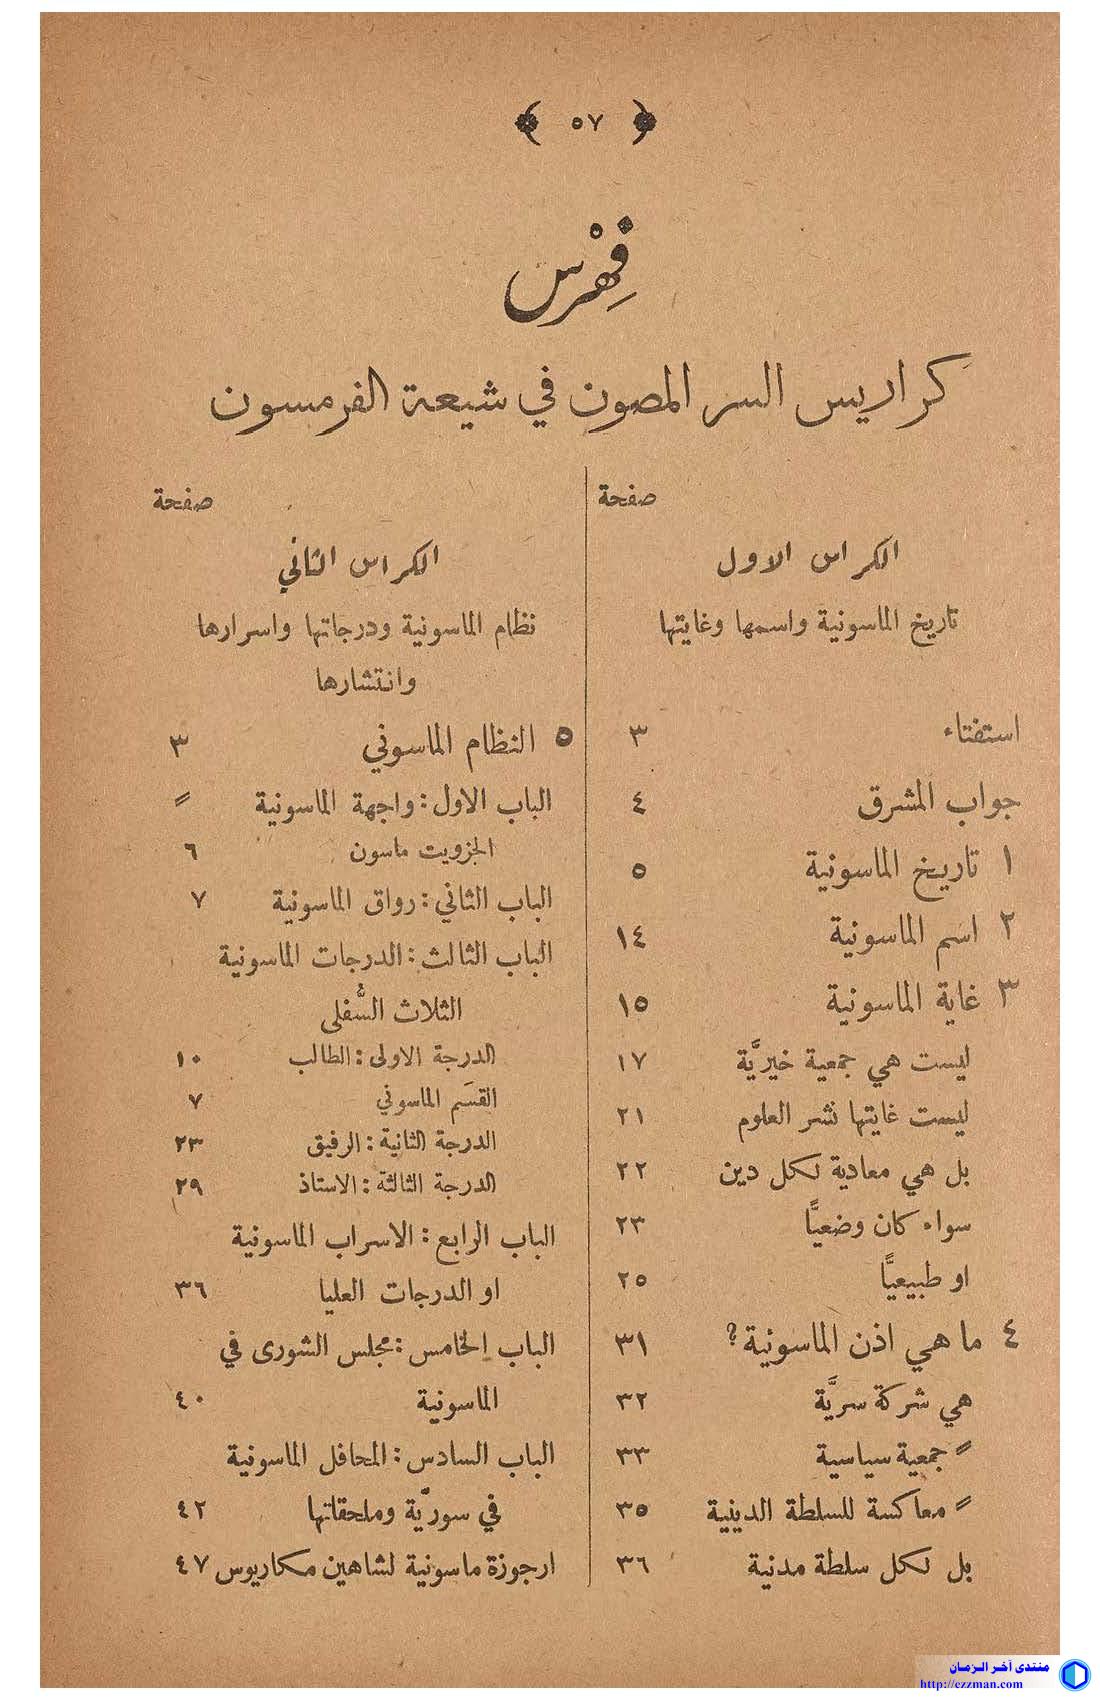 ٥٧
فِهْرس
كراريس السر المصون في شيعة الفرمسون
صفحة
الكراس الاول
تاريخ الماسونية واسمها وغايتها
استفتاء ٣
جواب المشرق ٤
١ تاريخ الماسونية ٥
٢ اسم الماسونية ١٤
٣ غاية الماسونية ١٥
ليست هي جمعية خيريَّة ١٧
ليست غايتها نشر العلوم ٢١
بل هي معادية لكل دين ٢٢
سواء كان وضعيًّا ٢٣
او طبيعيًّا ٢٥
٤ ما هي اذن الماسونية؟ ٣١
هي شركة سريَّة ٣٢
〃 جمعية سياسية ٣٣
〃 معاكسة للسلطة الدينية ٣٥
بل لكل سلطة مدنية ٣٦
صفحة
الكراس الثاني
نظام الماسونية ودرجاتها واسرارها
وانتشارها
٥ النظام الماسوني ٣
الباب الاول: واجهة الماسونية 〃
الجزويت ماسون ٦
الباب الثاني: رواق الماسونية ٧
الباب الثالث: الدرجات الماسونية
الثلاث السُّفلى
الدرجة الاولى: الطالب ١٠
القسَم الماسوني ٧
الدرجة الثانية: الرفيق ٢٣
الدرجة الثالثة: الاستاذ ٢٩
الباب الرابع: الاسراب الماسونية
او الدرجات العليا ٣٦
الباب الخامس: مجلس الشورى في
الماسونية ٤٠
الباب السادس: المحافل الماسونية
في سوريَّة وملحقاتها ٤٢
ارجوزة ماسونية لشاهين مكاريوس ٤٧
منتدى آخر الزمان
http://ezzman.com